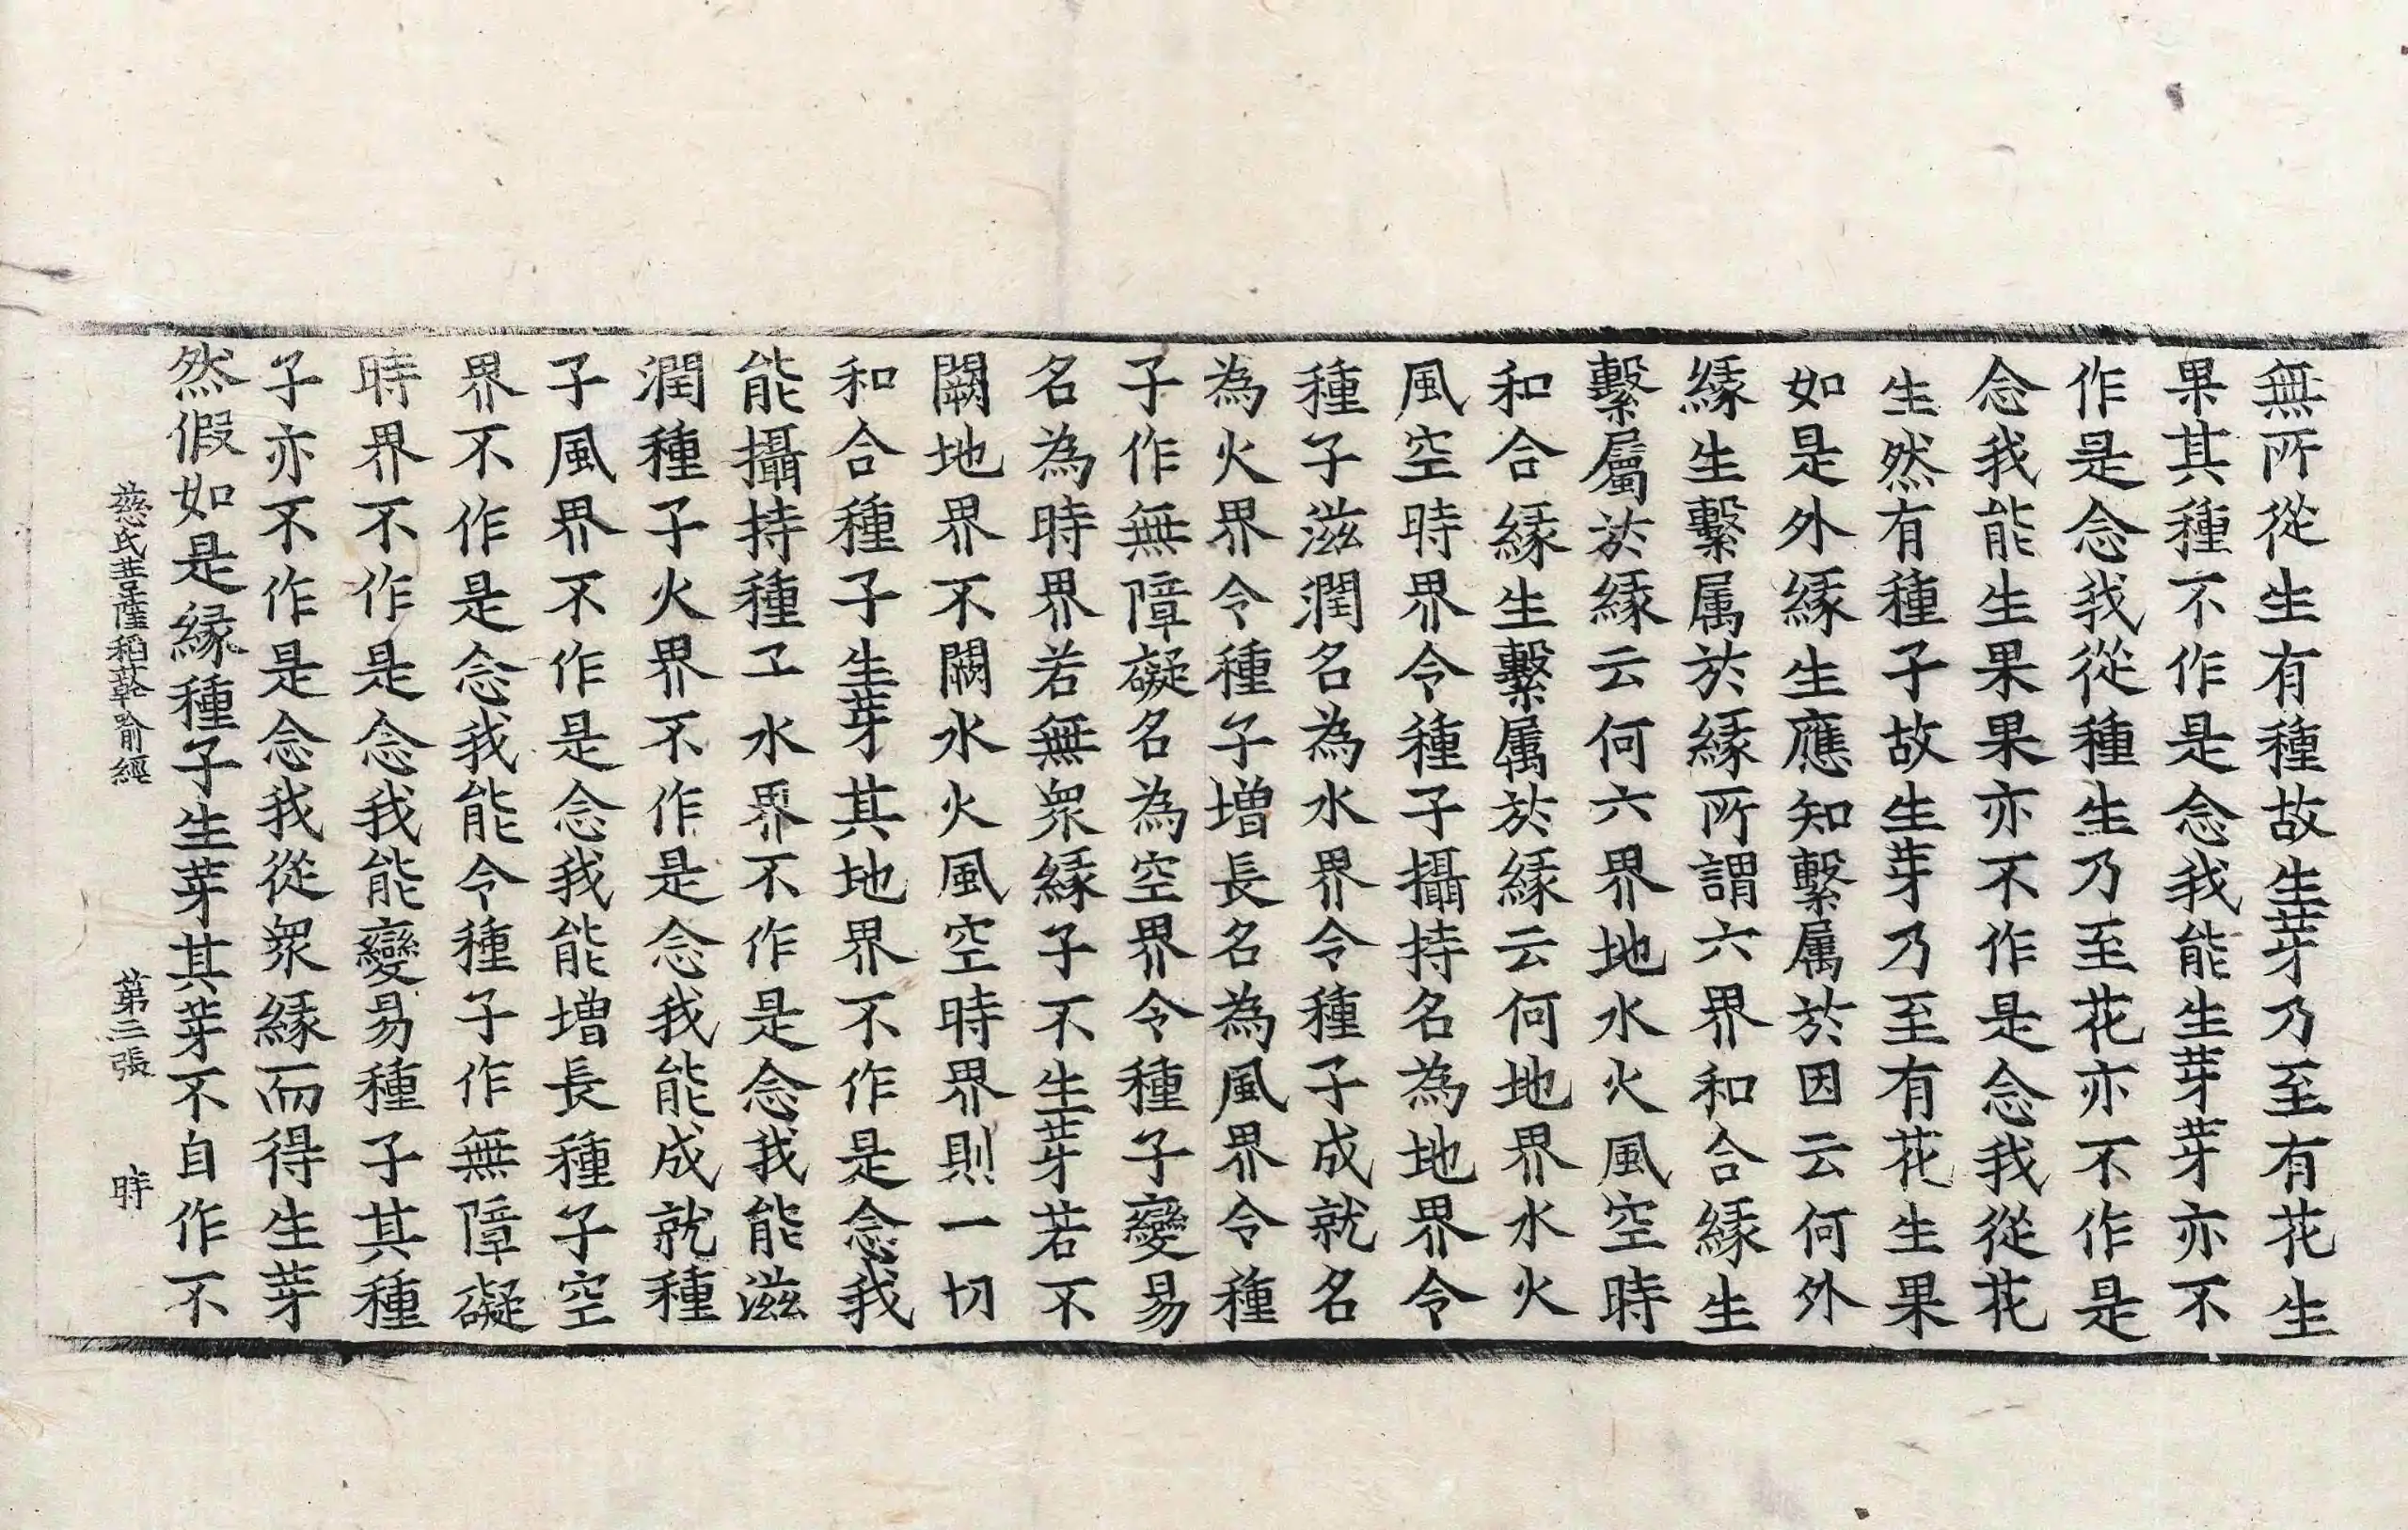 無所從生有種故生芽乃至有花生
果其種不作是念我能生芽芽亦不
作是念我從種生乃至花亦不作是
念我能生果果亦不作是念我從花
生然有種子故生芽乃至有花生果
如是外緣生應知繫属於因云何外
緣生繫属於緣所謂六界和合緣生
繫屬於緣云何六界地水火風空時
和合緣生繫属於緣云何地界水火
風空時界令種子攝持名為地界令
種子滋潤名為水界令種子成就名
為火界令種子增長名為風界令種
子作無障礙名為空界令種子變易
名為時界若無衆緣子不生芽若不
闕地界不闕水火風空時界則一切
和合種子生芽其地界不作是念我
能攝持種子水界不作是念我能滋
潤種子火界不作是念我能成就種
子風界不作是念我能增長種子空
界不作是念我能令種子作無障礙
時界不作是念我能變易種子其種
子亦不作是念我從衆緣而得生芽
然假如是緣種子生芽其芽不自作不
慈氏菩薩稻䕕喻經 第三張 時